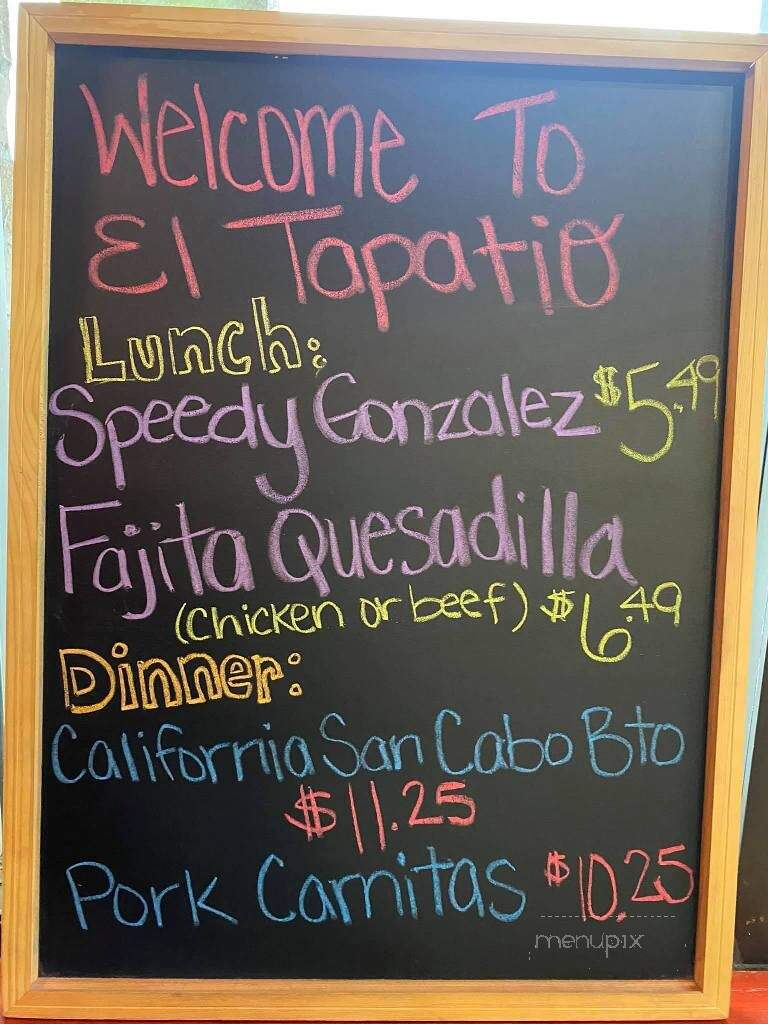 Welcome To
El Tapatio
Lunch:
Speedy Gonzalez $5.49
Fajita Quesadilla
(Chicken or beef) $6.49
Dinner:
California San Cabo Bto
$11.25
Pork Carnitas $10.25
menupix